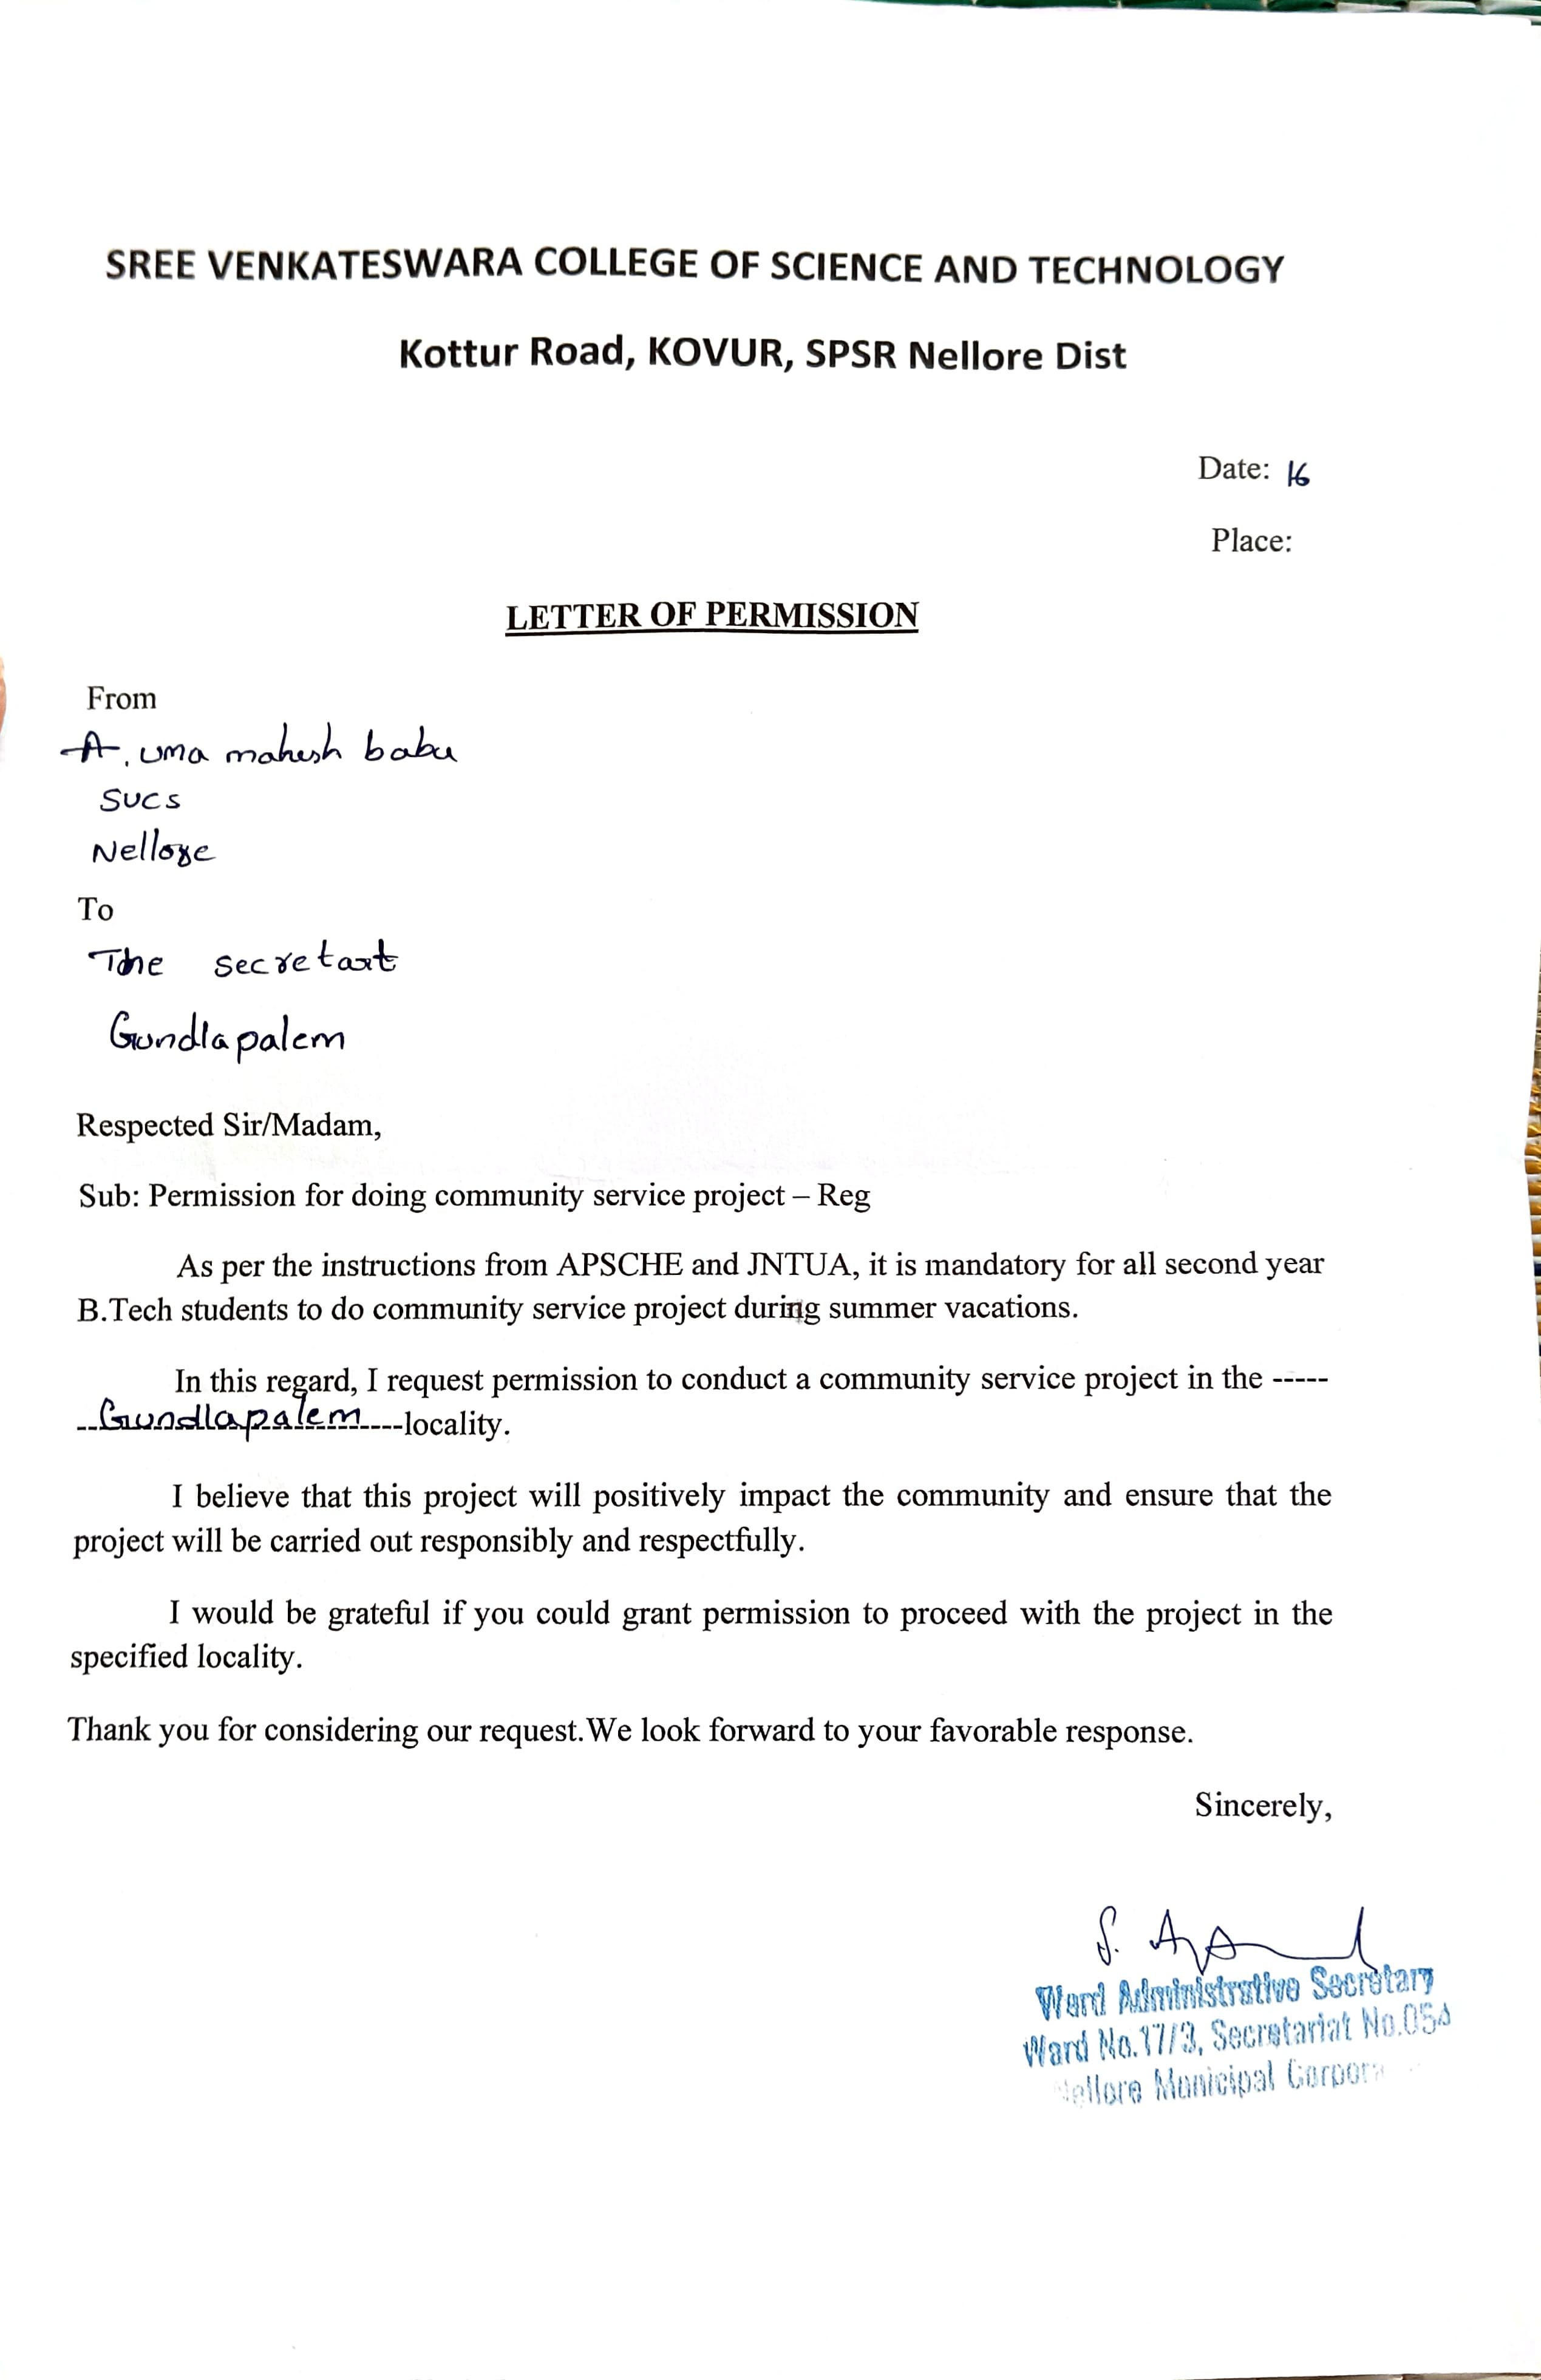 SREE VENKATESWARA COLLEGE OF SCIENCE AND TECHNOLOGY
Kottur Road, KOVUR, SPSR Nellore Dist
Date: 16
Place:
LETTER OF PERMISSION
From
A. uma mahesh babu
SVCS
Nellore
To
The secretart
Gundlapalem
Respected Sir/Madam,
Sub: Permission for doing community service project – Reg
As per the instructions from APSCHE and JNTUA, it is mandatory for all second year
B.Tech students to do community service project during summer vacations.
In this regard, I request permission to conduct a community service project in the -----
--Gundlapalem----locality.
I believe that this project will positively impact the community and ensure that the
project will be carried out responsibly and respectfully.
I would be grateful if you could grant permission to proceed with the project in the
specified locality.
Thank you for considering our request.We look forward to your favorable response.
Sincerely,
S.
Ward Administrative Secretary
Ward No.17/3, Secretariat
Nellore Municipal